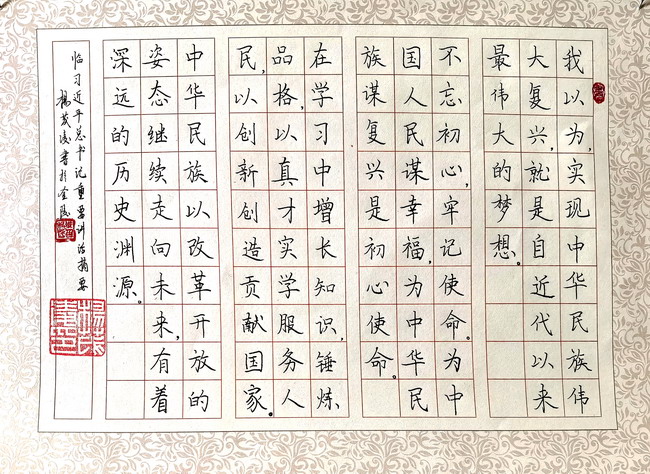 我以为,实现中华民族伟
大复兴,就是自近代以来
最伟大的梦想。
不忘初心,牢记使命。为中
国人民谋幸福,为中华民
族谋复兴是初心使命。
在学习中增长知识,锤炼
品格,以真才实学服务人
民,以创新创造贡献国家。
中华民族以改革开放的
姿态继续走向未来,有着
深远的历史渊源。
临习近平总书记重要讲话摘要
杨茂书于金陵